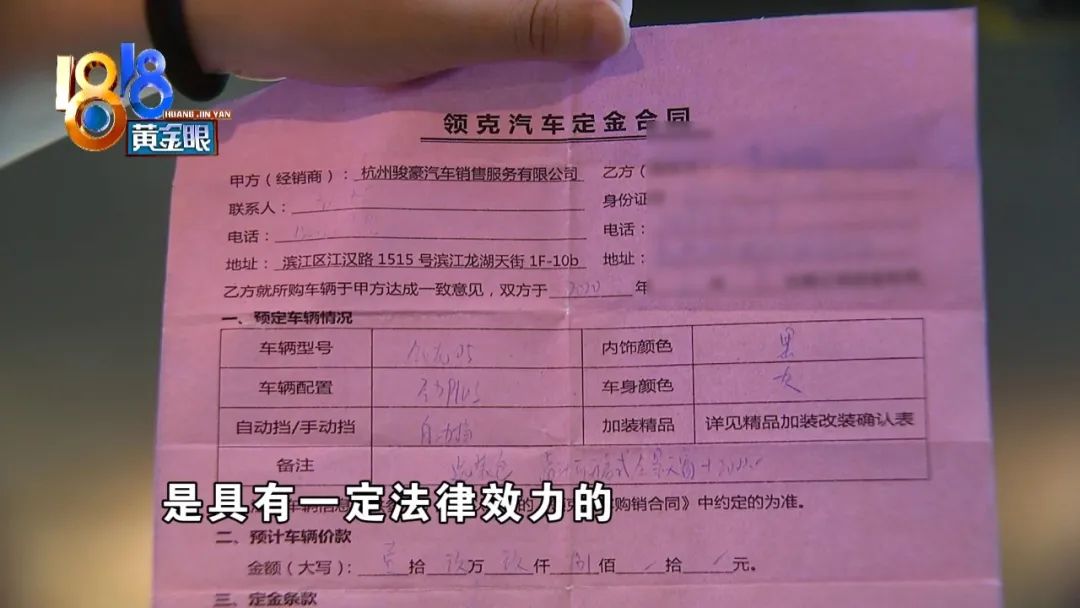 1818
HUANG JIN YAN
黄金眼
领克汽车定金合同
甲方（经销商）：杭州骏豪汽车销售服务有限公司 乙方（
联系人： 身份证
电话： 电话：
地址：滨江区江汉路1515号滨江龙湖天街1F-10b 地址：
乙方就所购车辆于甲方达成一致意见，双方于 年
一、预定车辆情况
车辆型号 内饰颜色 黑
车辆配置 车身颜色
自动挡/手动挡 自动挡 加装精品 详见精品加装改装确认表
备注
购销合同》中约定的为准。
是具有一定法律效力的
二、预计车辆价款
金额（大写）：壹拾玖万玖仟捌佰 拾 元。
三、定金条款